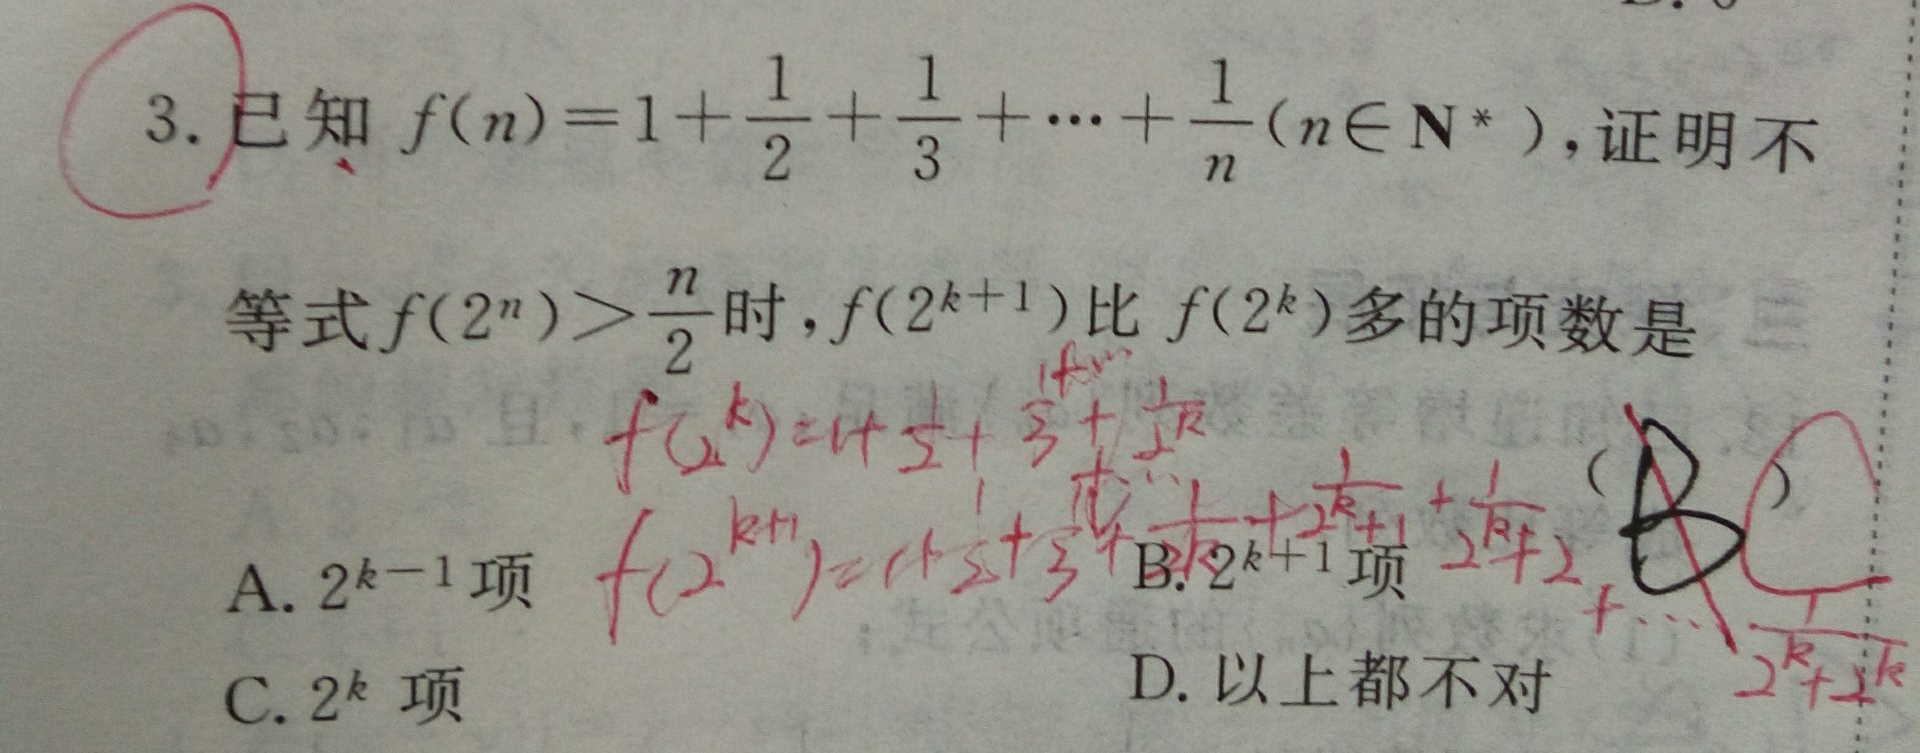 3. 已知 f(n)=1+\frac{1}{2}+\frac{1}{3}+⋯+\frac{1}{n}(n∈N*),证明不
等式f(2ⁿ)>\frac{n}{2}时,f(2^{k+1})比 f(2^k)多的项数是
f(2^k)=1+\frac{1}{2}+\frac{1}{3}+\frac{1}{2^k}
( B C )
f(2^{k+1})=1+\frac{1}{2}+\frac{1}{3}+\frac{1}{2^k}+\frac{1}{2^k+1}+\frac{1}{2^k+2}+⋯\frac{1}{2^k+2^k}
A. 2^{k-1}项 B. 2^{k+1}项
C. 2^k 项 D. 以上都不对